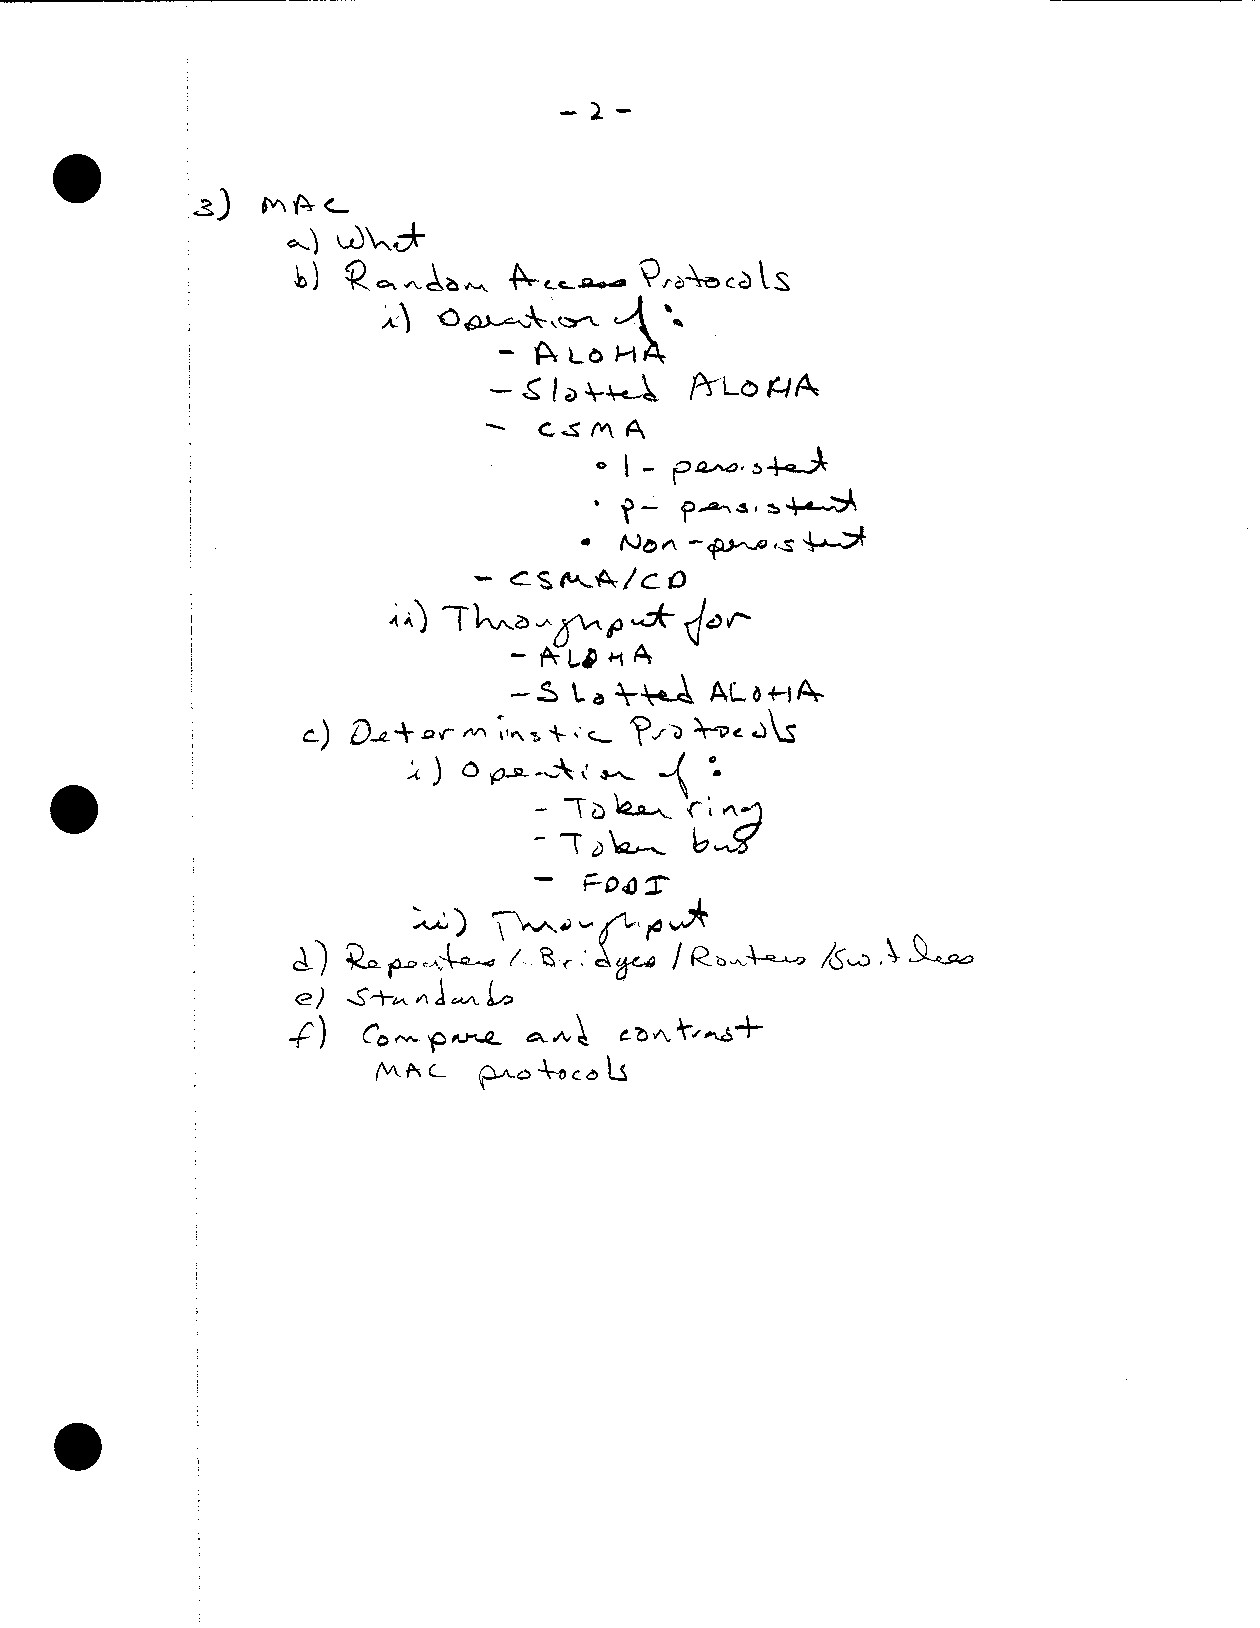 - 2 -
3) MAC
a) What
b) Random Access Protocols
i) Operation of :
- ALOHA
- Slotted ALOHA
- CSMA
• 1 - persistent
• p - persistent
• Non - persistent
- CSMA/CD
ii) Throughput for
- ALOHA
- Slotted ALOHA
c) Determinstic Protocols
i) Operation of :
- Token ring
- Token bus
- FDDI
ii) Throughput
d) Repeaters / Bridges / Routers / Switches
e) Standards
f) Compare and contrast
MAC protocols